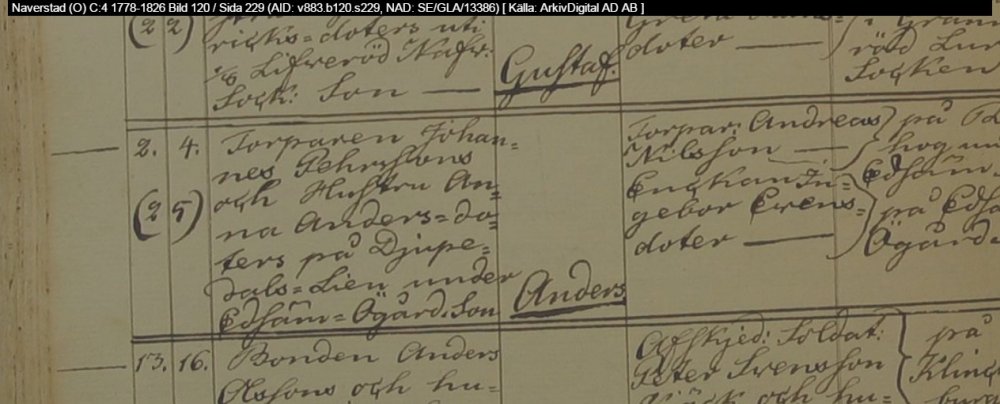 Naverstad (O) C:4 1778-1826 Bild 120 / Sida 229 (AID: v883.b120.s229, NAD: SE/GLA/13386) [ Källa: ArkivDigital AD AB ]
(2 2)
ricks=doters uti
Lifveröd Nafr:
Sock: Son —
Gustaf.
doter —
röd Lur
Socken
2. 4.
(2 5)
Torparen Johan=
nes Pehrssons
och Hustru An=
na Anders=do=
ters på Djupe=
dals=Lien under
Edsäm=Ögård. Son
Anders
Torpar: Andreas
Nilsson —
Enckan In=
gebor Svens=
doter —
på
hog un
Edsäm
på Edsä
Ögård
13. 16.
Bonden Anders
Olssons och hu=
Afskjed: Soldat:
Peter Svensson
och hu=
på
Kling